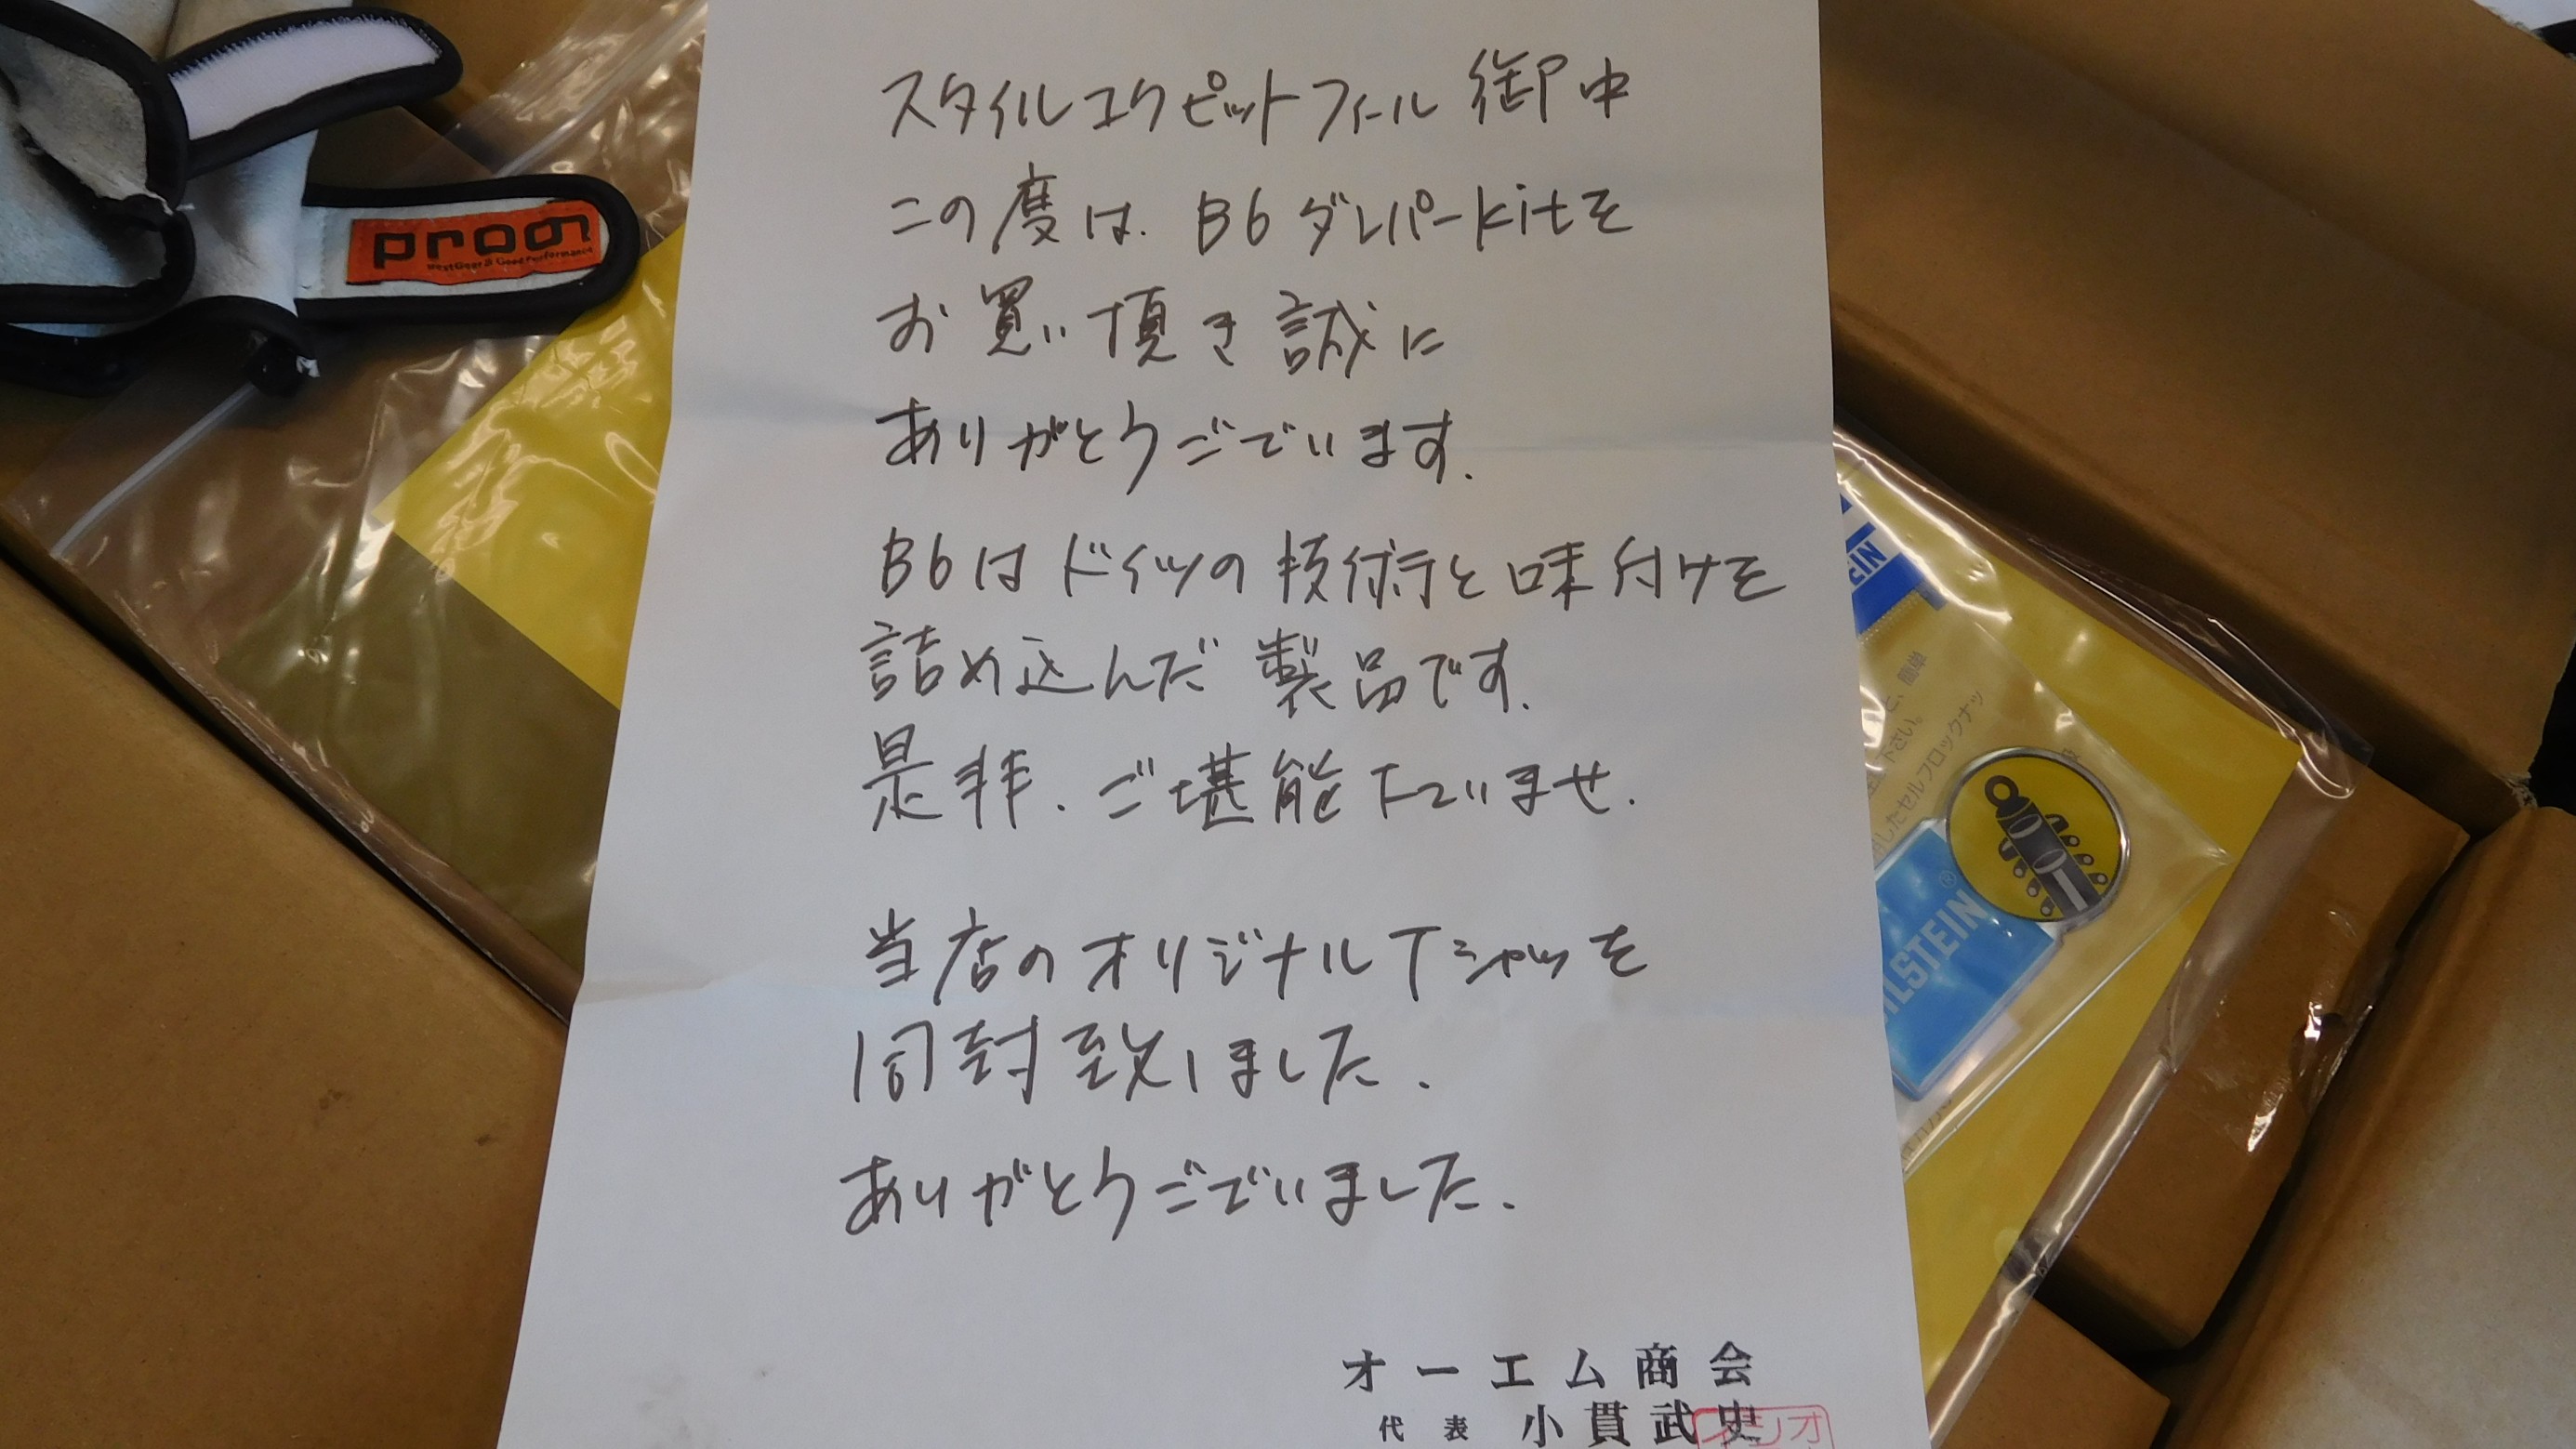 スタイルコクピットフィール 御中
この度は、B6 ダンパーkitを
お買い頂き誠に
ありがとうございます。
B6はドイツの技術と味付けを
詰め込んだ製品です。
是非、ご堪能下さいませ。
当店のオリジナルTシャツを
同封致しました。
ありがとうございました。
オーエム商会
代表 小貫武史
proon
ILSTEIN®
下さい。
したセルフロックナッ
簡単